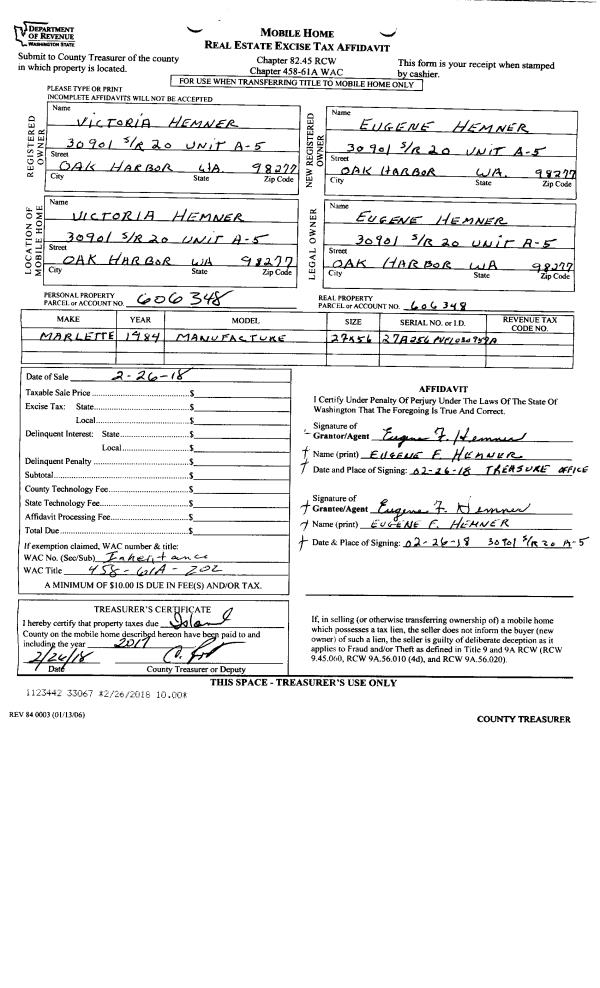 DEPARTMENT
OF REVENUE
WASHINGTON STATE
MOBILE HOME
REAL ESTATE EXCISE TAX AFFIDAVIT
Submit to County Treasurer of the county
in which property is located.
Chapter 82.45 RCW
Chapter 458-61A WAC
This form is your receipt when stamped
by cashier.
FOR USE WHEN TRANSFERRING TITLE TO MOBILE HOME ONLY
PLEASE TYPE OR PRINT
INCOMPLETE AFFIDAVITS WILL NOT BE ACCEPTED
REGISTERED
OWNER
Name
VICTORIA HEMNER
30901 S/R 20 UNIT A-5
Street
OAK HARBOR WA. 98277
City State Zip Code
NEW REGISTERED
OWNER
Name
EUGENE HEMNER
30901 S/R 20 UNIT A-5
Street
OAK HARBOR WA. 98277
City State Zip Code
LOCATION OF
MOBILE HOME
Name
VICTORIA HEMNER
30901 S/R 20 UNIT A-5
Street
OAK HARBOR WA 98277
City State Zip Code
LEGAL OWNER
Name
EUGENE HEMNER
30901 S/R 20 UNIT A-5
Street
OAK HARBOR WA 98277
City State Zip Code
PERSONAL PROPERTY
PARCEL or ACCOUNT NO. 606348
REAL PROPERTY
PARCEL or ACCOUNT NO. 606348
MAKE YEAR MODEL SIZE SERIAL NO. or I.D. REVENUE TAX
CODE NO.
MARLETTE 1984 MANUFACTURE 27X56
Date of Sale 2-26-18
Taxable Sale Price $
Excise Tax: State $
Local $
Delinquent Interest: State $
Local $
Delinquent Penalty $
Subtotal $
County Technology Fee $
State Technology Fee $
Affidavit Processing Fee $
Total Due $
If exemption claimed, WAC number & title:
WAC No. (Sec/Sub) Inheritance
WAC Title 458-61A-202
A MINIMUM OF $10.00 IS DUE IN FEE(S) AND/OR TAX.
AFFIDAVIT
I Certify Under Penalty Of Perjury Under The Laws Of The State Of
Washington That The Foregoing Is True And Correct.
Signature of
Grantor/Agent Eugene F. Hemner
Name (print) EUGENE F. HEMNER
Date and Place of Signing: 02-26-18 TREASURE OFFICE
Signature of
Grantee/Agent Eugene F. Hemner
Name (print) EUGENE F. HEMNER
Date & Place of Signing: 02-26-18 30901 S/R 20 A-5
TREASURER'S CERTIFICATE
I hereby certify that property taxes due Island
County on the mobile home described hereon have been paid to and
including the year 2017
2/26/18
Date County Treasurer or Deputy
If, in selling (or otherwise transferring ownership of) a mobile home
which possesses a tax lien, the seller does not inform the buyer (new
owner) of such a lien, the seller is guilty of deliberate deception as it
applies to Fraud and/or Theft as defined in Title 9 and 9A RCW (RCW
9.45.060, RCW 9A.56.010 (4d), and RCW 9A.56.020).
THIS SPACE - TREASURER'S USE ONLY
1123442 33067 *2/26/2018 10.00*
REV 84 0003 (01/13/06)
COUNTY TREASURER